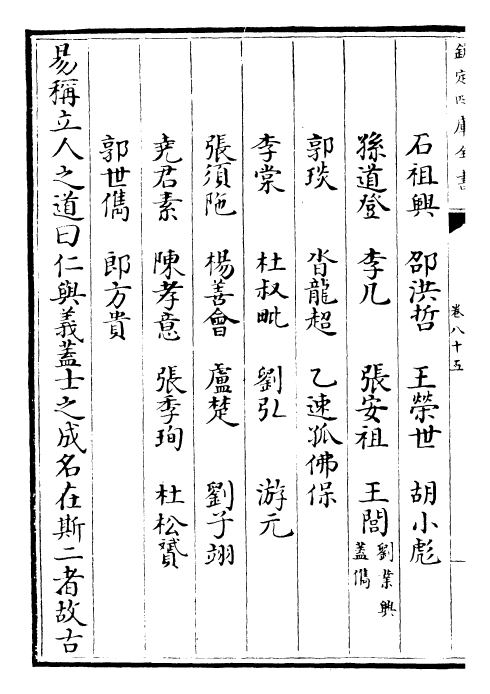 欽定四庫全書
卷八十五
石祖興 邵洪哲 王榮世 胡小彪
孫道登 李几 張安祖 王閭 劉業興 蓋儁
郭琰 沓龍超 乙速孤佛保
李棠 杜叔毗 劉弘 游元
張須陁 楊善會 盧楚 劉子翊
堯君素 陳孝意 張季珣 杜松贇
郭世儁 郎方貴
易稱立人之道曰仁與義蓋士之成名在斯二者故古